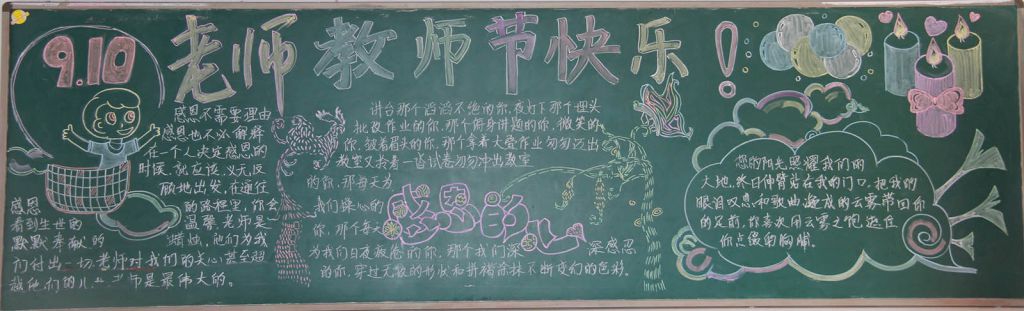 9.10
老师教师节快乐!
感恩不需要理由
感恩也不必解释
在一个人决定感恩的
时候,就应该义无反
顾地出发,在通往
的路程里,你会
感恩 温馨.老师是一
看到生世的 蜡烛,他们为我
默默奉献的
们付出一切.老师对我们的关心甚至超
越他们的儿 师是最伟大的。
讲台那个滔滔不绝的你,夜幻下那个埋头
批改作业的你,那个俯身讲题的你,微笑的
你,皱着眉头的你,那个拿着大叠作业匆匆迈出
教室又抬着一沓试卷匆匆冲出教室
的你,那每天为
我们操心的
你,那个每天
为我们日夜疲惫的你,那个我们深 深感忍
的你,穿过无数的形状和拼辅涂抹不断变幻的色彩。
感恩的心
您的阳光照耀我们的
大地,终日伸臂站在我的门口,把我的
眼泪叹息和歌曲造成的云雾带回你
的足前,你喜欢用云雾之饱遮住
你点缀的胸脯。